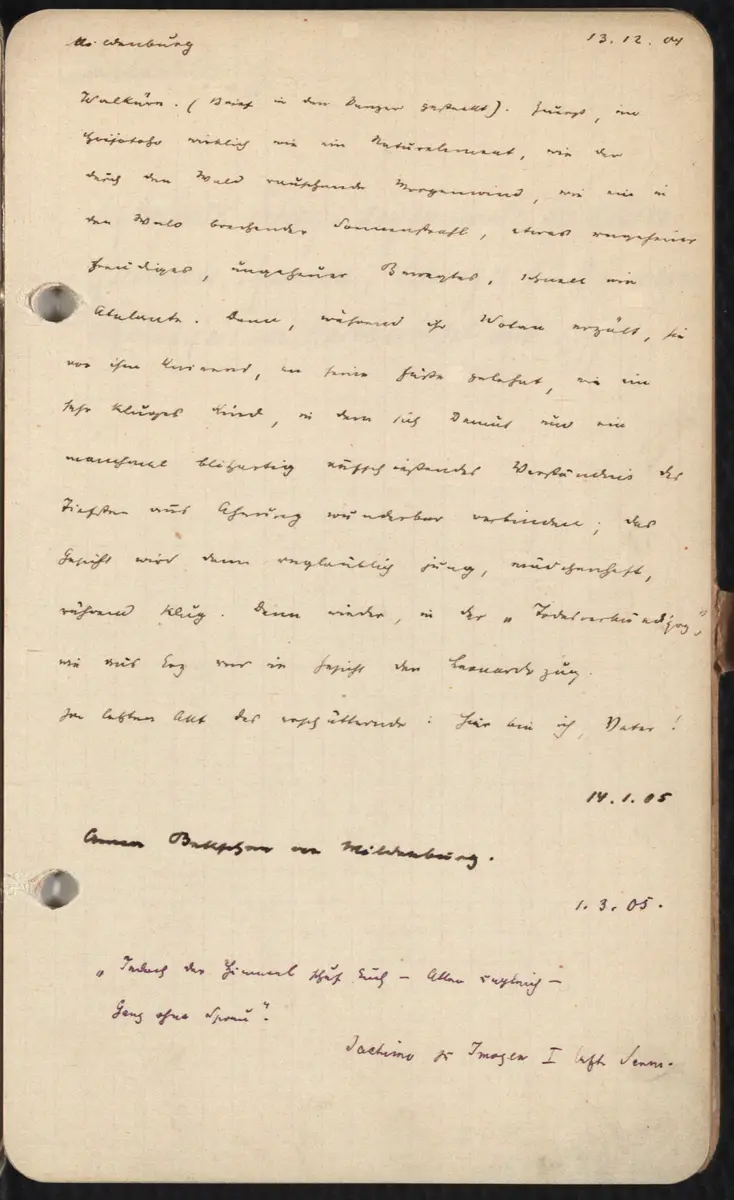 Mildenburg 13.12.04
Walküre. (Brief in den Panzer gesteckt). Zuerst, im
Hojotoho wirklich wie ein Naturelement, wie der
durch den Wald rauschende Morgenwind, wie ein in
den Wald brechender Sonnenstrahl, etwas ungeheuer
freudiges, ungeheuer Bewegtes, schnell wie
Atalante. Dann, während ihr Wotan erzält, sie
vor ihm knieend, an seine Füße gelehnt, wie ein
sehr kluges Kind, in dem sich Demut und ein
manchmal blitzartig aufschießendes Verständnis des
Tiefsten aus Ahnung wunderbar verbinden; das
Gesicht wird dann unglaublich jung, mädchenhaft,
rührend klug. Dann wieder, in der „Todesverkündigung",
wie aus Erz nur im Gesicht den Leonardozug.
Im letzten Akt das erschütternde: Hier bin ich, Vater!
14.1.05
Anna Bellschan von Mildenburg.
1.3.05.
„Jedoch der Himmel schuf Euch – Allen zugleich –
Ganz ohne Spreu".
Jachimo zu Imogen I